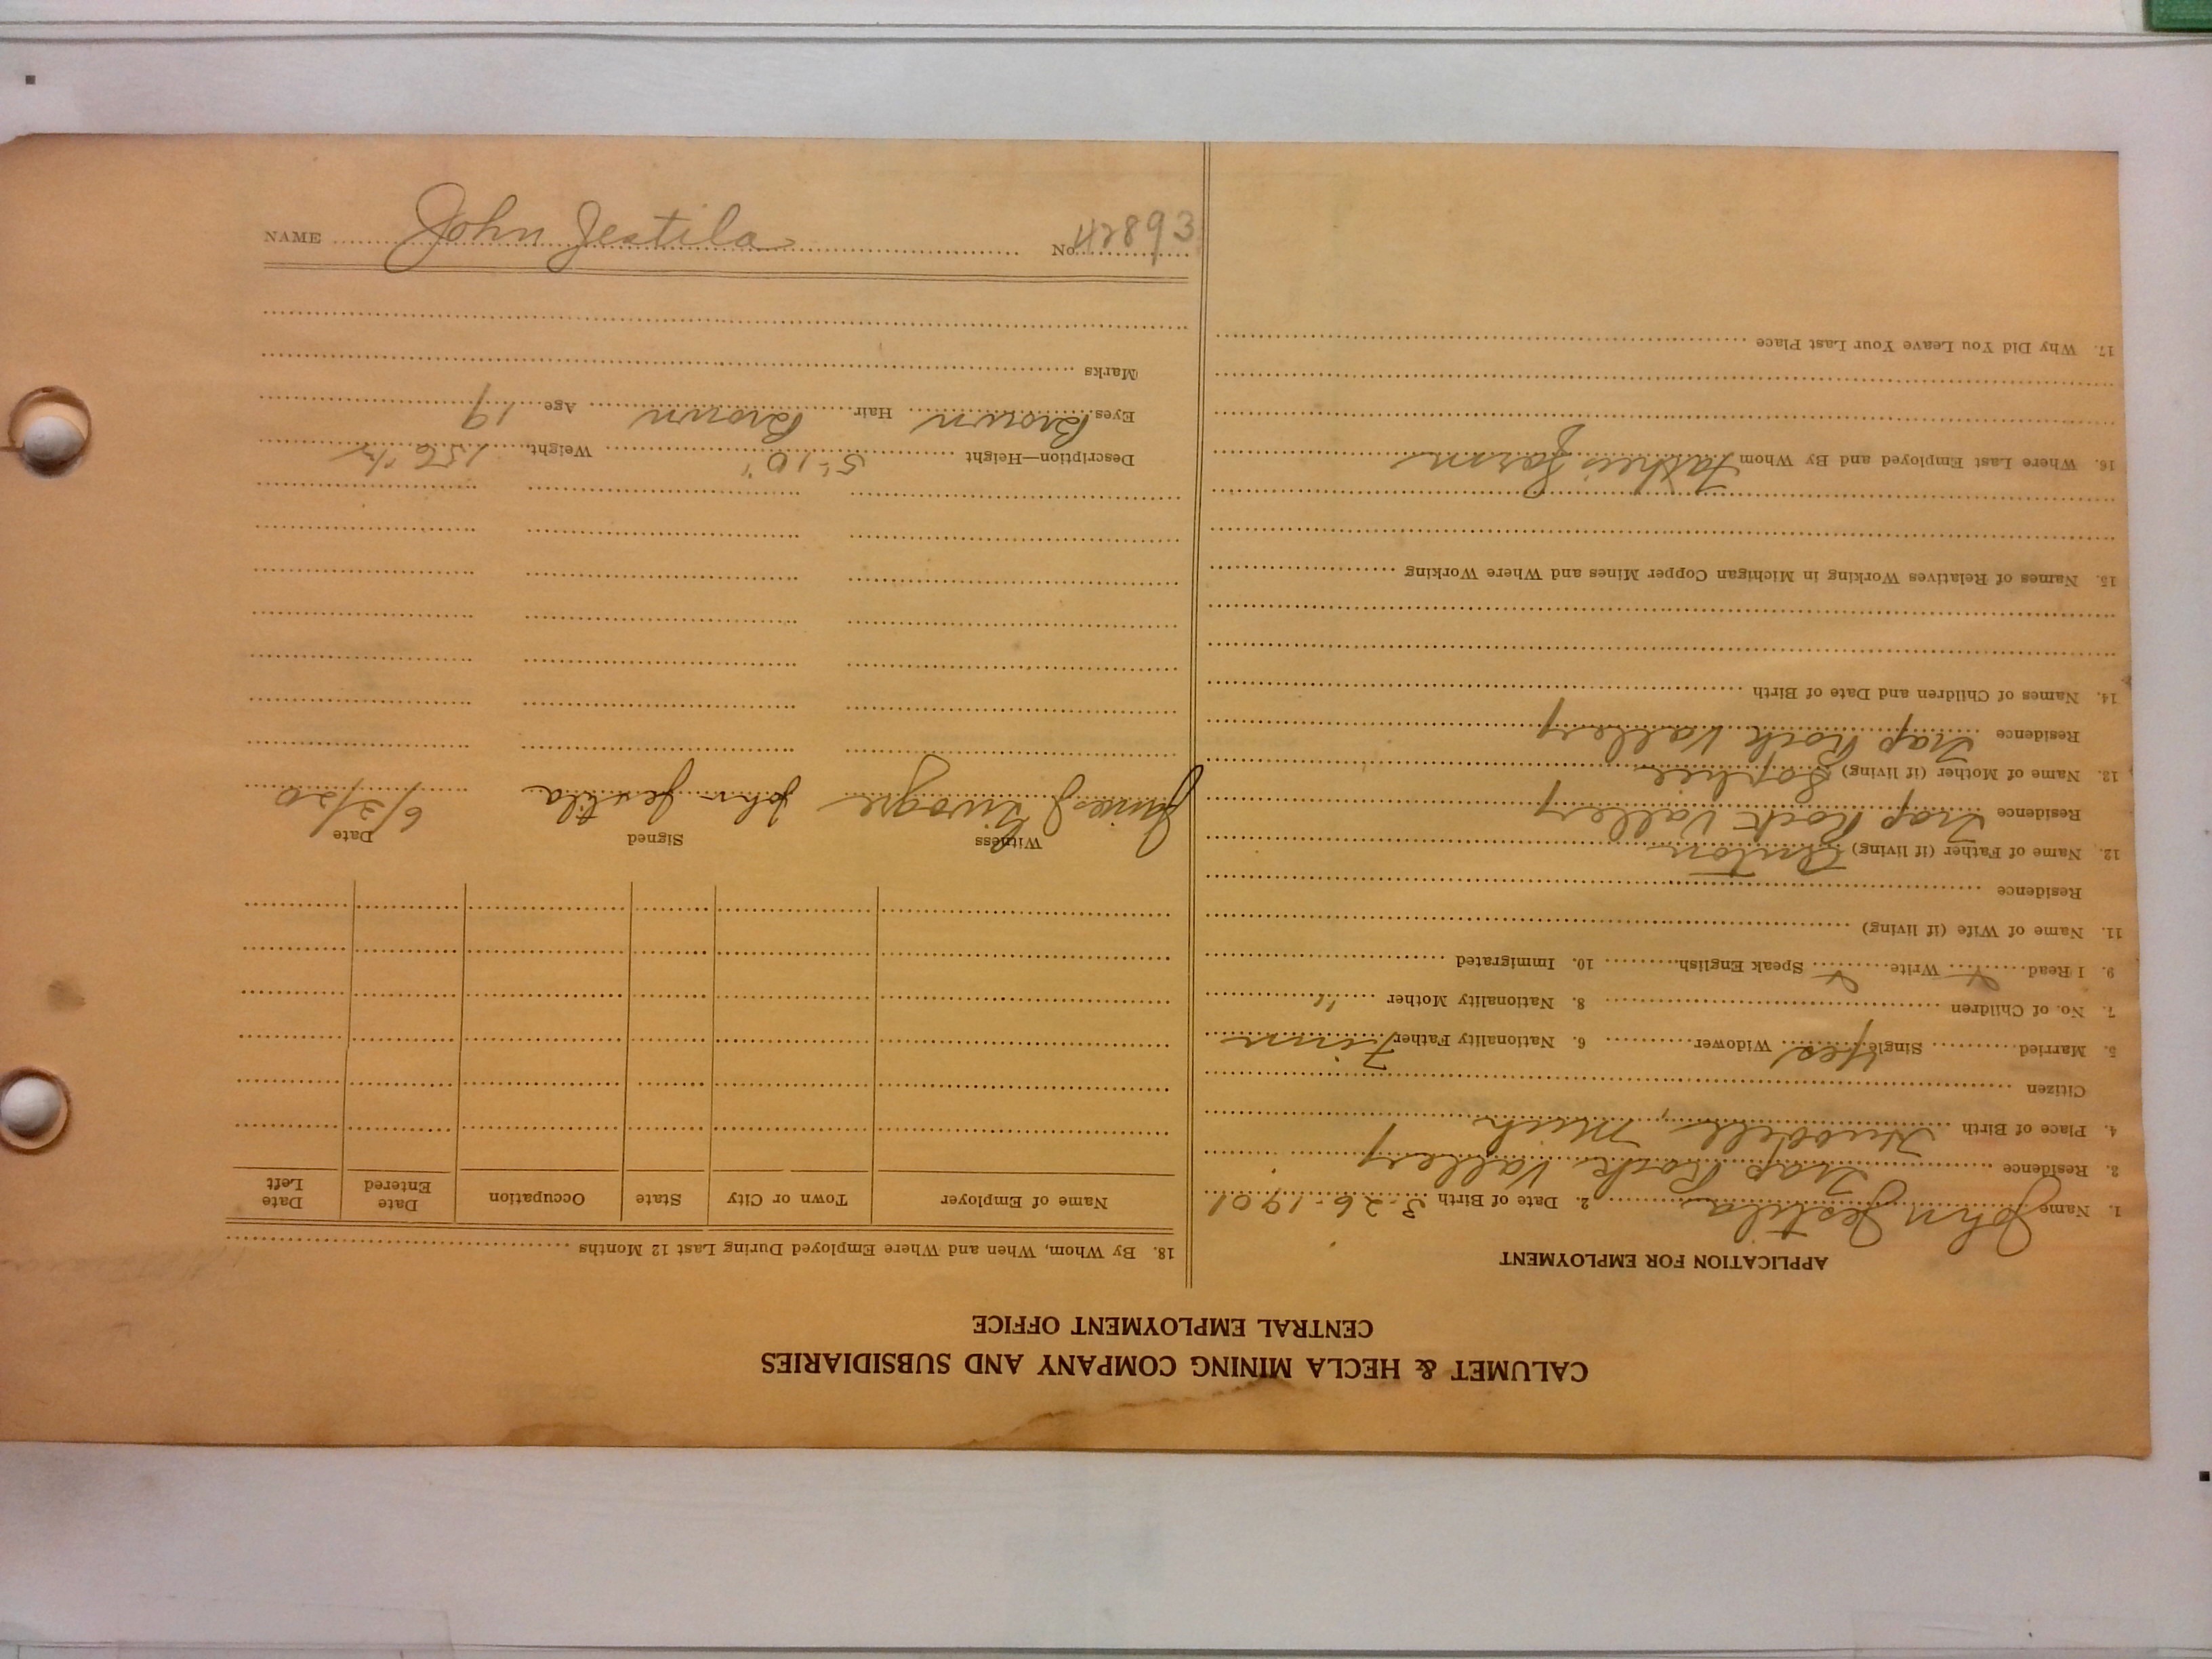 CALUMET & HECLA MINING COMPANY AND SUBSIDIARIES
CENTRAL EMPLOYMENT OFFICE
APPLICATION FOR EMPLOYMENT
1. Name John Jestila 2. Date of Birth 3-26-1901
3. Residence Trap Rock Vallery
4. Place of Birth Hubbell, Mich
Citizen
5. Married Single Yes Widower 6. Nationality Father Finn
7. No. of Children 8. Nationality Mother "
9. I Read Write Speak English 10. Immigrated
11. Name of Wife (if living)
Residence
12. Name of Father (if living) Anton
Residence Trap Rock Vallery
13. Name of Mother (if living) Sophie
Residence Trap Rock Vallery
14. Names of Children and Date of Birth
15. Names of Relatives Working in Michigan Copper Mines and Where Working
16. Where Last Employed and By Whom Fathers Farm
17. Why Did You Leave Your Last Place
18. By Whom, When and Where Employed During Last 12 Months
Name of Employer Town or City State Occupation Date Entered Date Left
Witness Signed Date
James J John Jestila 6/3/20
Description—Height 5'-10" Weight 156
Eyes Brown Hair Brown Age 19
Marks
NAME John Jestila No. 42893